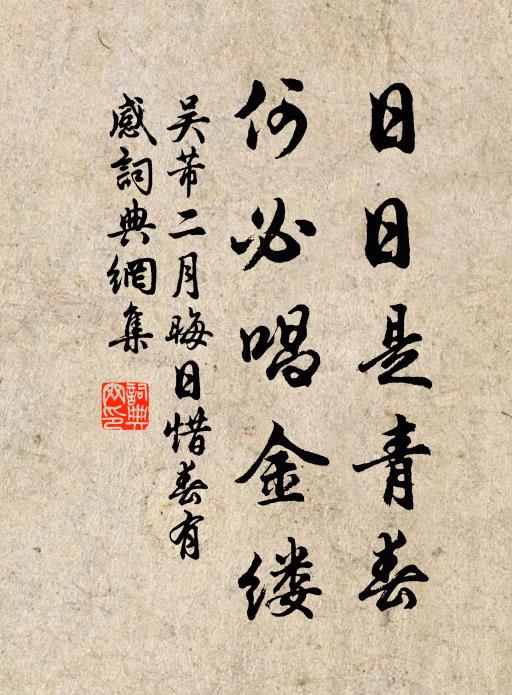 日日是青春
何必唱金缕
吴芾二月晦日惜春有
感詞典網集
詞典
网印